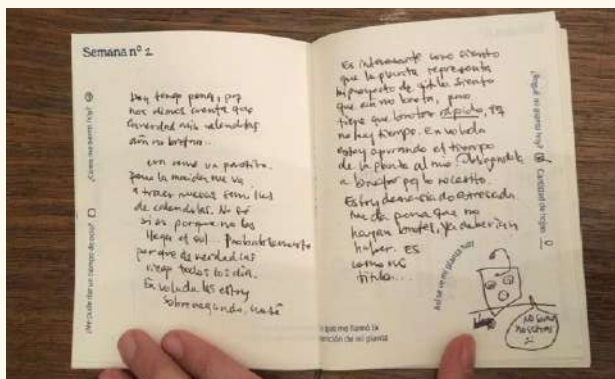 Semana nº 2
¿Cómo me siento hoy?
¿Me pude dar un tiempo de ocio?
Hoy tengo pena, pq
nos dimos cuenta que
en verdad mis calenditas
aún no brotan...
era como un pastito.
pero la maider me va
a traer nuevas semillas
de calendulas. No sé
si es porque no les
llega el sol. Probablemente
porque de verdad las
riego todos los dia.
En volada les estoy
sobreregando, no sé
Es interesante como siento
que la planta representa
mi proyecto de título. siento
que aún no brota, pero
tiene que brotar rápido, pq
no hay tiempo. En volada
estoy apurando el tiempo
de la planta al mio. obligandola
a brotar pq lo necesito.
Estoy demasiado estresada
Me da pena que no
hayan brotes, ya deberian
haber. Es
como mi
título...
¿Regué mi planta hoy?
Cantidad de hojas:
0
Así se ve mi planta hoy
que me llamó la
atención de mi planta